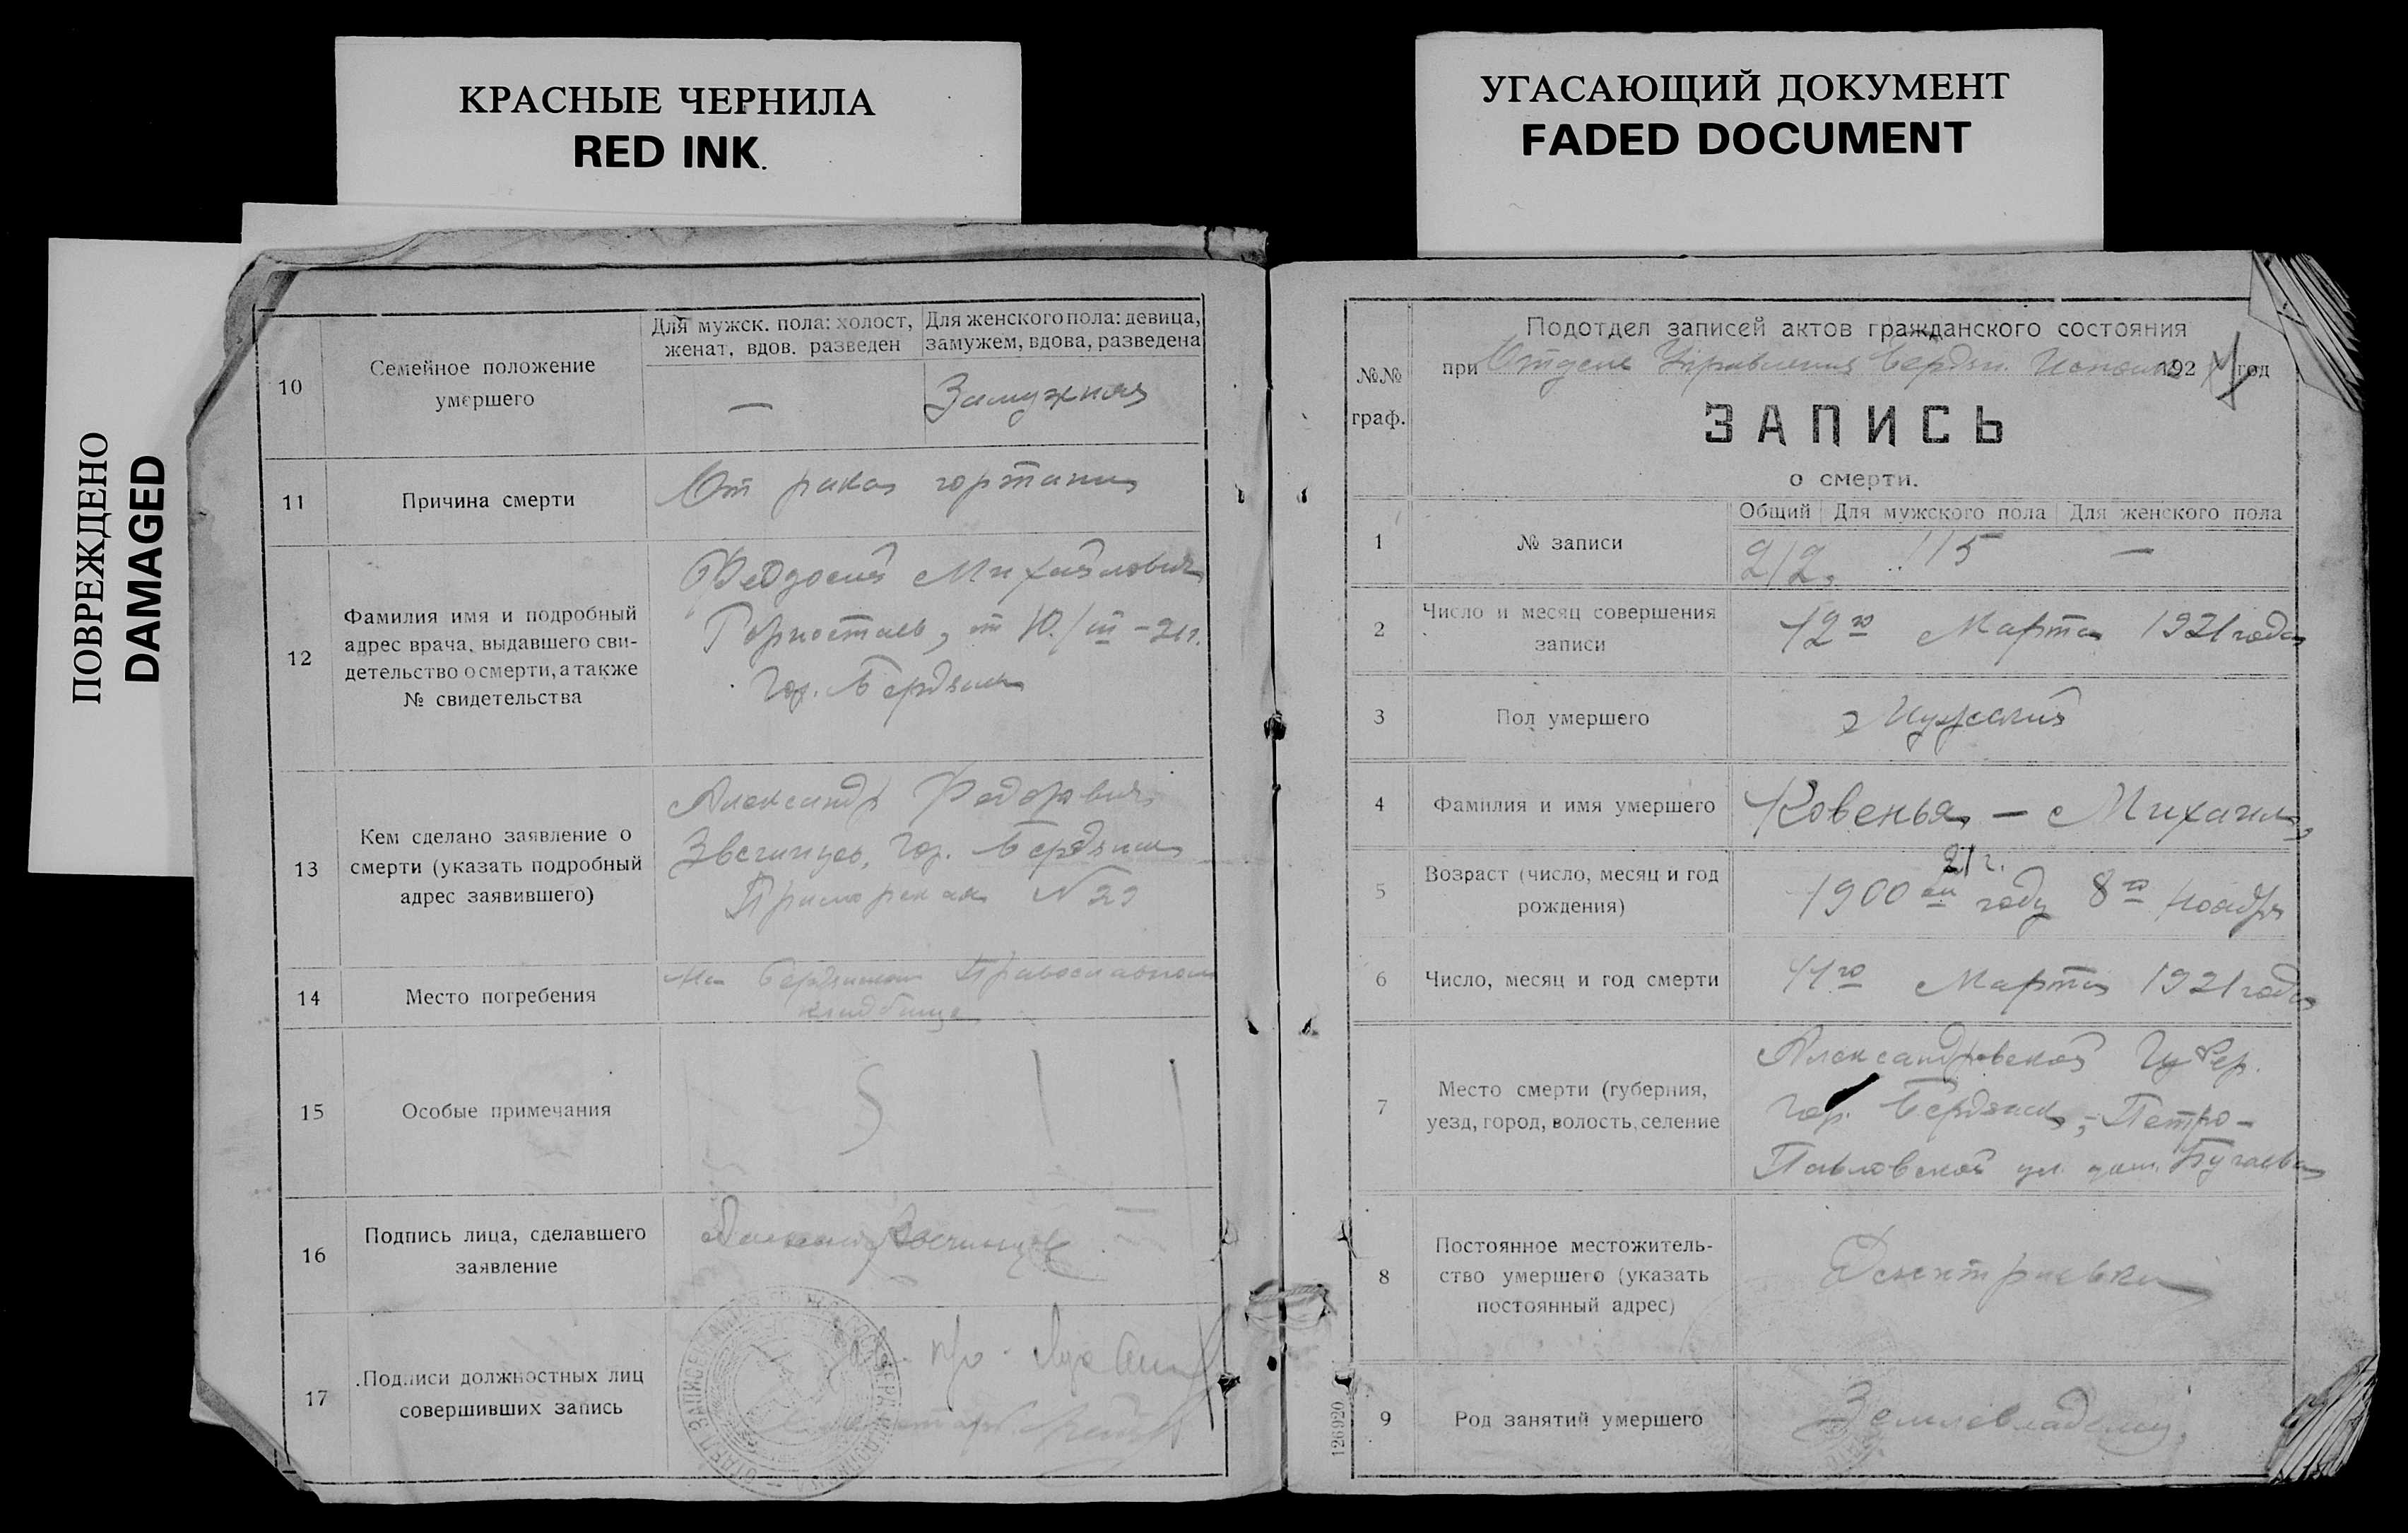 КРАСНЫЕ ЧЕРНИЛА
RED INK.
УГАСАЮЩИЙ ДОКУМЕНТ
FADED DOCUMENT
ПОВРЕЖДЕНО
DAMAGED
10
Семейное положение
умершего
Для мужск. пола: холост,
женат, вдов. разведен
Для женского пола: девица,
замужем, вдова, разведена
—
Замужняя
11
Причина смерти
От рака гортани
12
Фамилия имя и подробный
адрес врача, выдавшего сви-
детельство о смерти, а также
№ свидетельства
Феодосий Михайлович
Горностаев, от 10/III-21г.
Гор. Бердянск
13
Кем сделано заявление о
смерти (указать подробный
адрес заявившего)
Александр Федорович
Звегинцев, Гор. Бердянск
Приморская N 29
14
Место погребения
На Бердянском Православном
кладбище
15
Особые примечания
16
Подпись лица, сделавшего
заявление
17
Подписи должностных лиц
совершивших запись
№№
граф.
Подотдел записей актов гражданского состояния
при Отделе Управления Бердян. 192 год
ЗАПИСЬ
о смерти.
1
№ записи
Общий
Для мужского пола
Для женского пола
212
115
—
2
Число и месяц совершения
записи
12го Марта 1921 года
3
Пол умершего
Мужской
4
Фамилия и имя умершего
Ковенья — Михаил
5
Возраст (число, месяц и год
рождения)
21 г.
1900 году 8го Ноября
6
Число, месяц и год смерти
11го Марта 1921 года
7
Место смерти (губерния,
уезд, город, волость, селение
Александровской Губер.
Гор. Бердянск, Петро-
Павловской ул. дом. Бугаева
8
Постоянное местожитель-
ство умершего (указать
постоянный адрес)
9
Род занятий умершего
Землевладелец
1261920